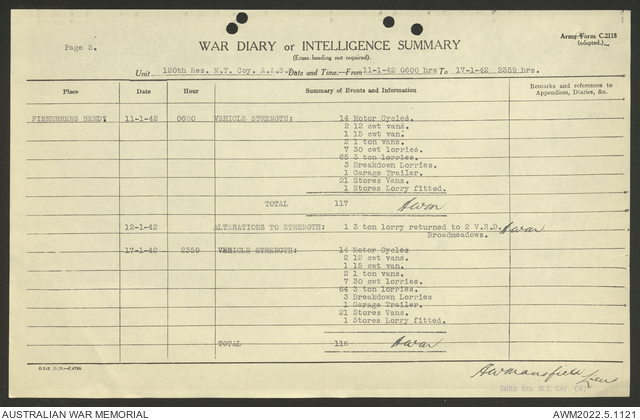 Army Form C.2118
(adapted.)
Page 5.
WAR DIARY or INTELLIGENCE SUMMARY
(Erase heading not required).
Unit 120th Res. M.T. Coy. A.A.S. Date and Time—From 11-1-42 0600 hrs To 17-1-42 2359 hrs.
Place Date Hour Summary of Events and Information Remarks and references to Appendices, Diaries, &c.
FISHERMENS BEND? 11-1-42 0600 VEHICLE STRENGTH: 14 Motor Cycles.
2 12 cwt vans.
1 15 cwt van.
2 1 ton vans.
7 30 cwt lorries.
65 3 ton lorries.
3 Breakdown Lorries.
1 Garage Trailer.
21 Stores Vans.
1 Stores Lorry fitted.
TOTAL 117
12-1-42 ALTERATIONS TO STRENGTH: 1 3 ton lorry returned to 2 V.R.D.
Broadmeadows.
17-1-42 2359 VEHICLE STRENGTH: 14 Motor Cycles
2 12 cwt vans.
1 15 cwt van.
2 1 ton vans.
7 30 cwt lorries.
64 3 ton lorries.
3 Breakdown Lorries
1 Garage Trailer.
21 Stores Vans.
1 Stores Lorry fitted.
TOTAL 116
AWMansfield
120th Res. M.T. Coy.
AUSTRALIAN WAR MEMORIAL AWM2022.5.1121